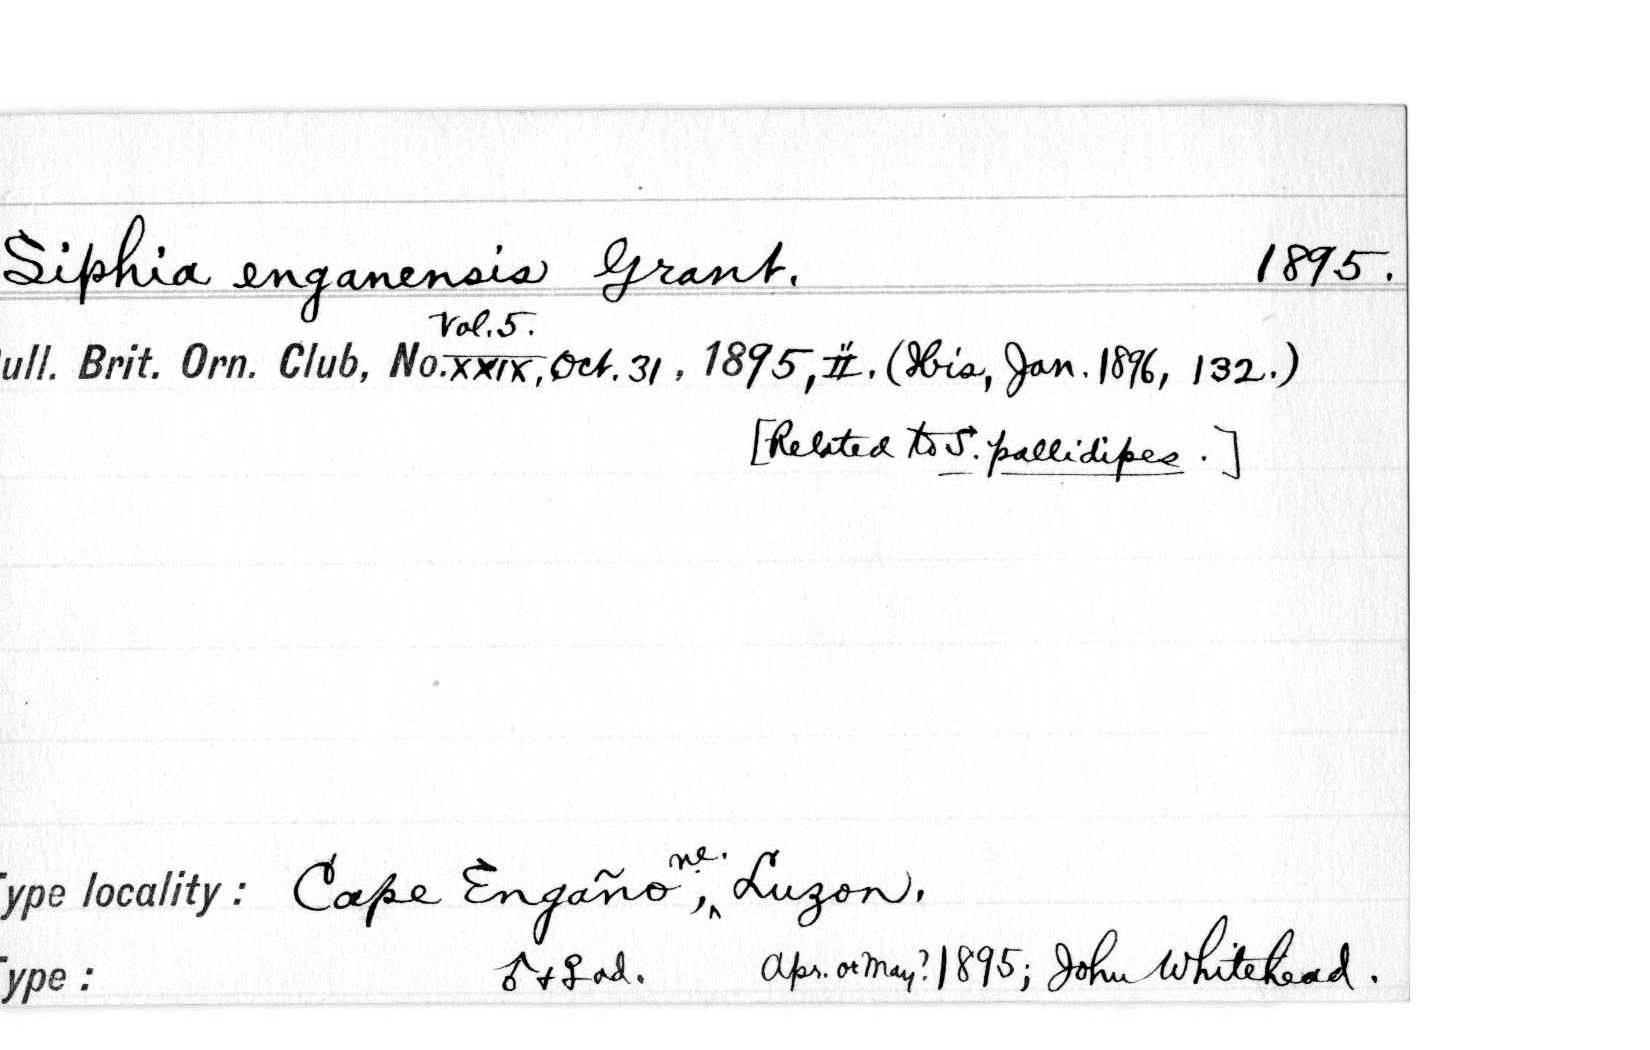 Siphia enganensis Grant. 1895.
Vol. 5.
ull. Brit. Orn. Club, No. XXIX, Oct. 31, 1895, ii. (Ibis, Jan. 1896, 132.)
[Related to S. pallidipes.]
ne.
Type locality: Cape Engaño, Luzon.
Type: ♂ + ♀ ad. Apr. or May? 1895; John Whitehead.